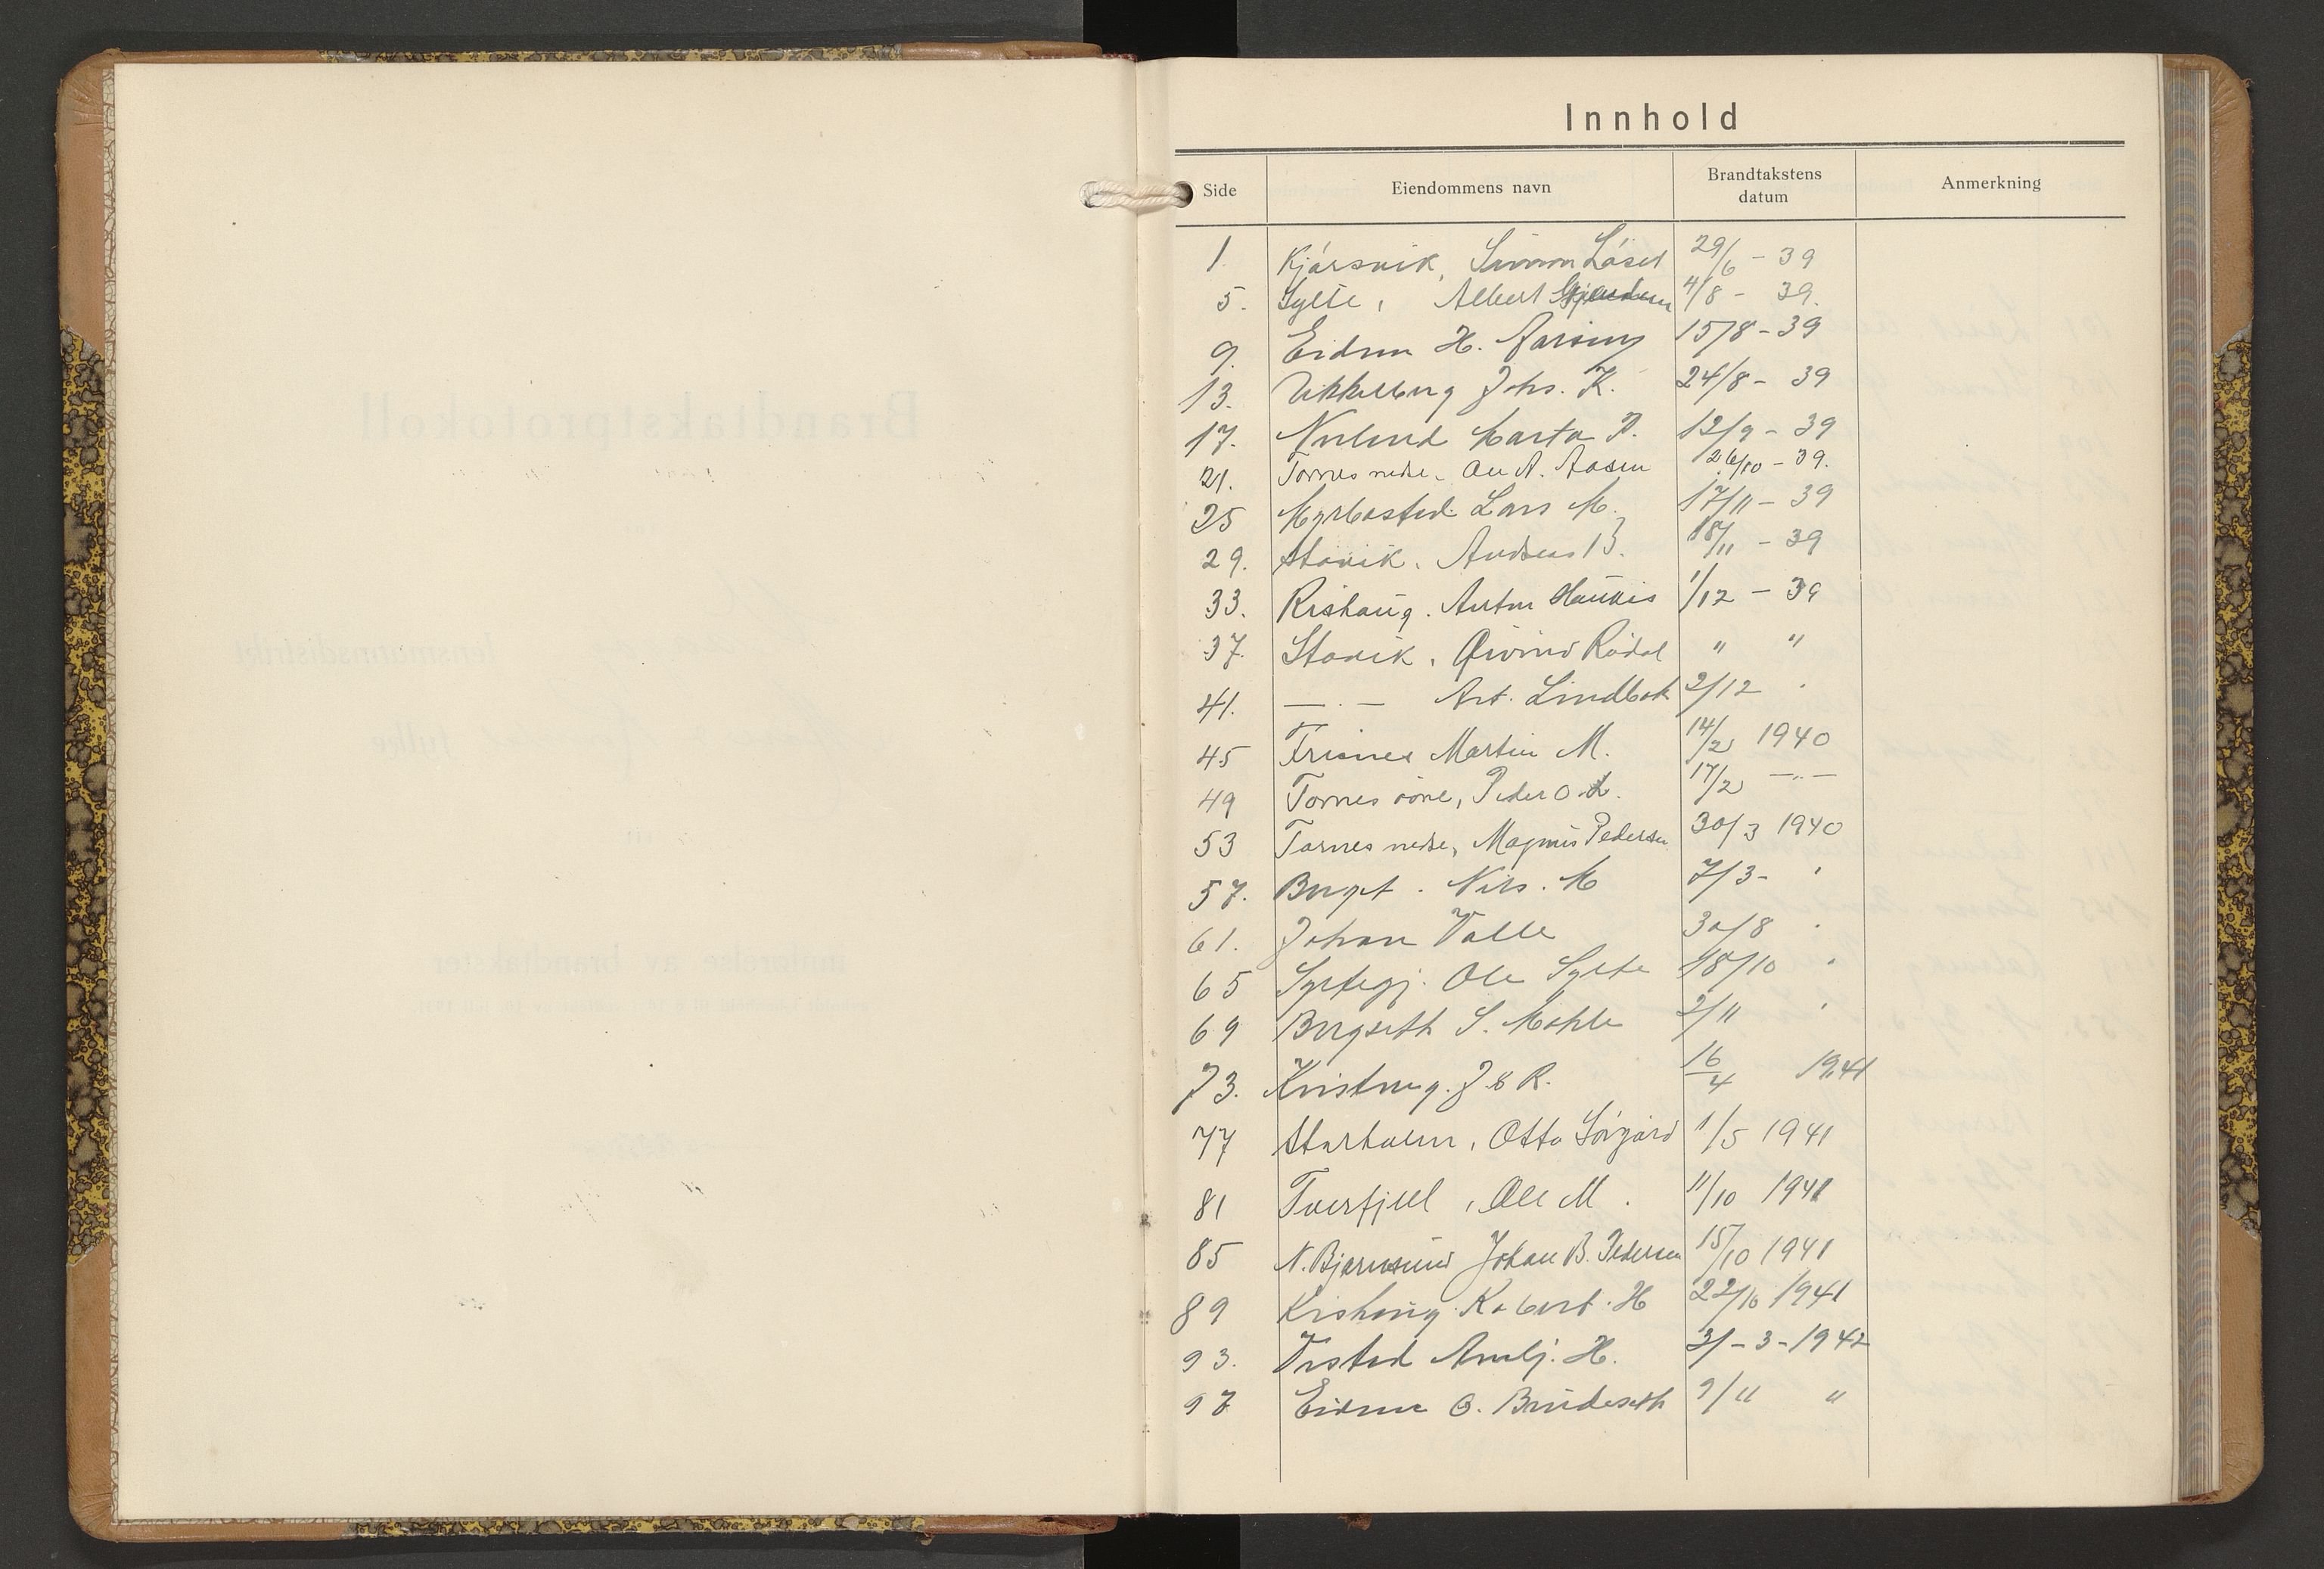 Innhold
Side Eiendommens navn Brandtakstens datum Anmerkning
1. Kjørsvik, Simon Løset 29/6 - 39
5. Sylte, Albert 4/8 - 39.
9. Eidem H. 15/8 - 39
13. Vikkelberg Johs. K. 24/8 - 39
17. Marta P. 12/9 - 39
21. Tornes nedre. Ole A. Aasen 26/10 - 39.
25 Myrbostad Lars M. 17/11 - 39
29. Stavik. Andreas B. 18/11 - 39
33. Rishaug. Anton 1/12 - 39
37. Stavik. Øivind Rødal " "
41. — . — Art. Lindbak 2/12 "
45 Frisnes Martin M. 14/2 1940
49 Tornes øvre, Peder O. 17/2 — " —
53 Tornes nedre, Magnus Pedersen 30/3 1940
57. Berget. Nils. M 7/3 - "
61. Johan Valle 30/8 "
65 Syltegj. Ole Sylte 18/10 "
69 Bergseth S. Mahle 2/11 "
73. J & R. 16/4 1941
77 Starholm, Otto Sørgård 1/5 1941
81 Tverfjell, Ole M. 11/10 1941
85 N. Bjørnsund Johan B. Pedersen 15/10 1941
89 Robert. H 22/10 1941
93. H. 31 - 3 - 1942
97 O. Brudeseth 9/11 "
Brandtakstprotokoll
lensmannsdistrikt
fylke
innførelse av brandtakster